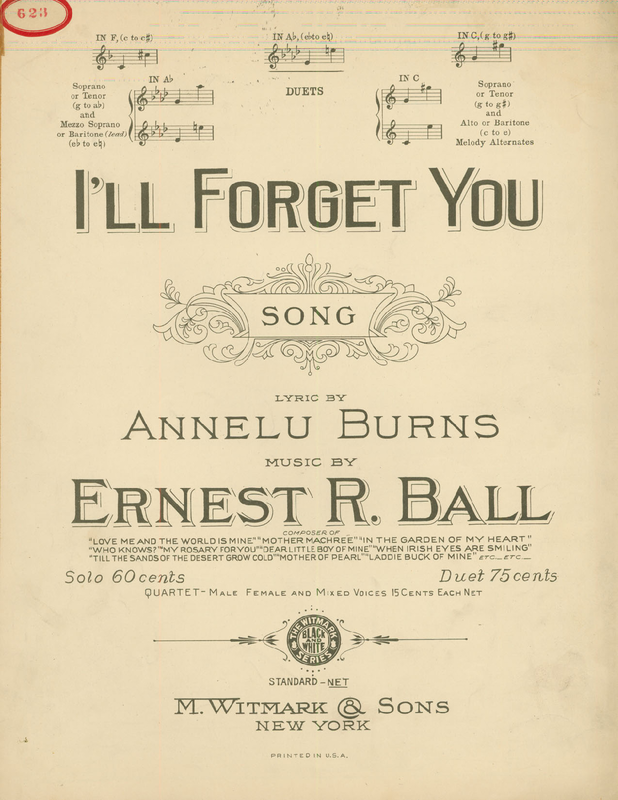 623
IN F, (c to c♯)
IN A♭, (e♭ to e♮)
IN C, (g to g♯)
Soprano
or Tenor
(g to a♭)
and
Mezzo Soprano
or Baritone (lead)
(e♭ to e♮)
IN A♭
DUETS
IN C
Soprano
or Tenor
(g to g♯)
and
Alto or Baritone
(c to e)
Melody Alternates
I'LL FORGET YOU
SONG
LYRIC BY
ANNELU BURNS
MUSIC BY
ERNEST R. BALL
COMPOSER OF
"LOVE ME AND THE WORLD IS MINE" "MOTHER MACHREE" "IN THE GARDEN OF MY HEART"
"WHO KNOWS?" "MY ROSARY FOR YOU" "DEAR LITTLE BOY OF MINE" "WHEN IRISH EYES ARE SMILING"
"TILL THE SANDS OF THE DESERT GROW COLD" "MOTHER OF PEARL" "LADDIE BUCK OF MINE" ETC_ETC_
Solo 60 cents
Duet 75 cents
QUARTET - MALE FEMALE AND MIXED VOICES 15 CENTS EACH NET
THE WITMARK
BLACK
AND
WHITE
SERIES
STANDARD - NET
M. WITMARK & SONS
NEW YORK
PRINTED IN U.S.A.